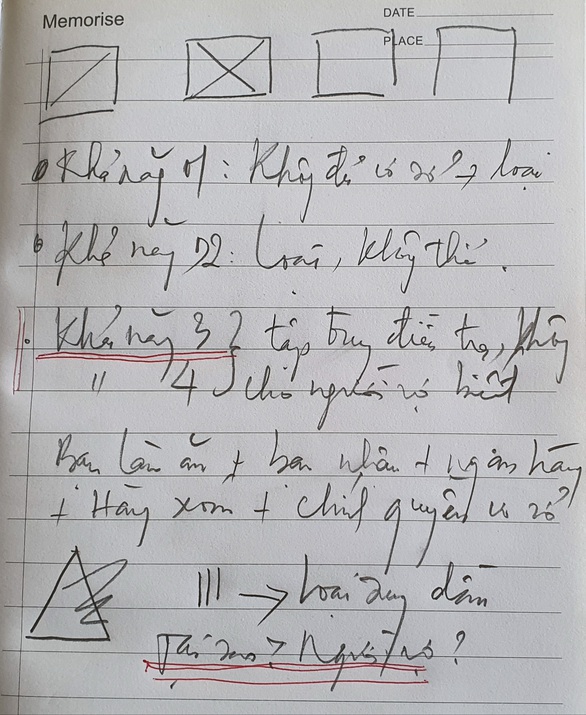 Memorise
DATE
PLACE
Khả năng 01: Không đủ cơ sở → loại
Khả năng 02: Loại, không thể.
Khả năng 3 tập trung điều tra, không
" 4 cho người vợ biết
Bạn làm ăn + bạn nhậu + ngân hàng
+ Hàng xóm + chính quyền cơ sở
||| → Loại dần
Tại sao > Người vợ?